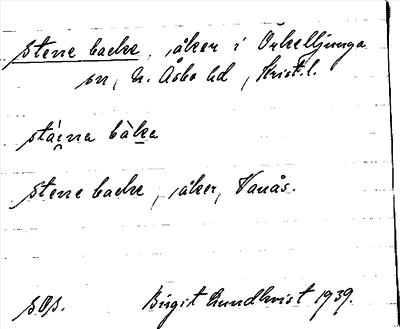 stene backe, åker i Örkelljunga
sn, N. Åsbo hd, Krist. l.
stá̀i̯na bàka
stene backe, åker, Vanås.
s. 0 s.
Birgit Lundkvist 1939.